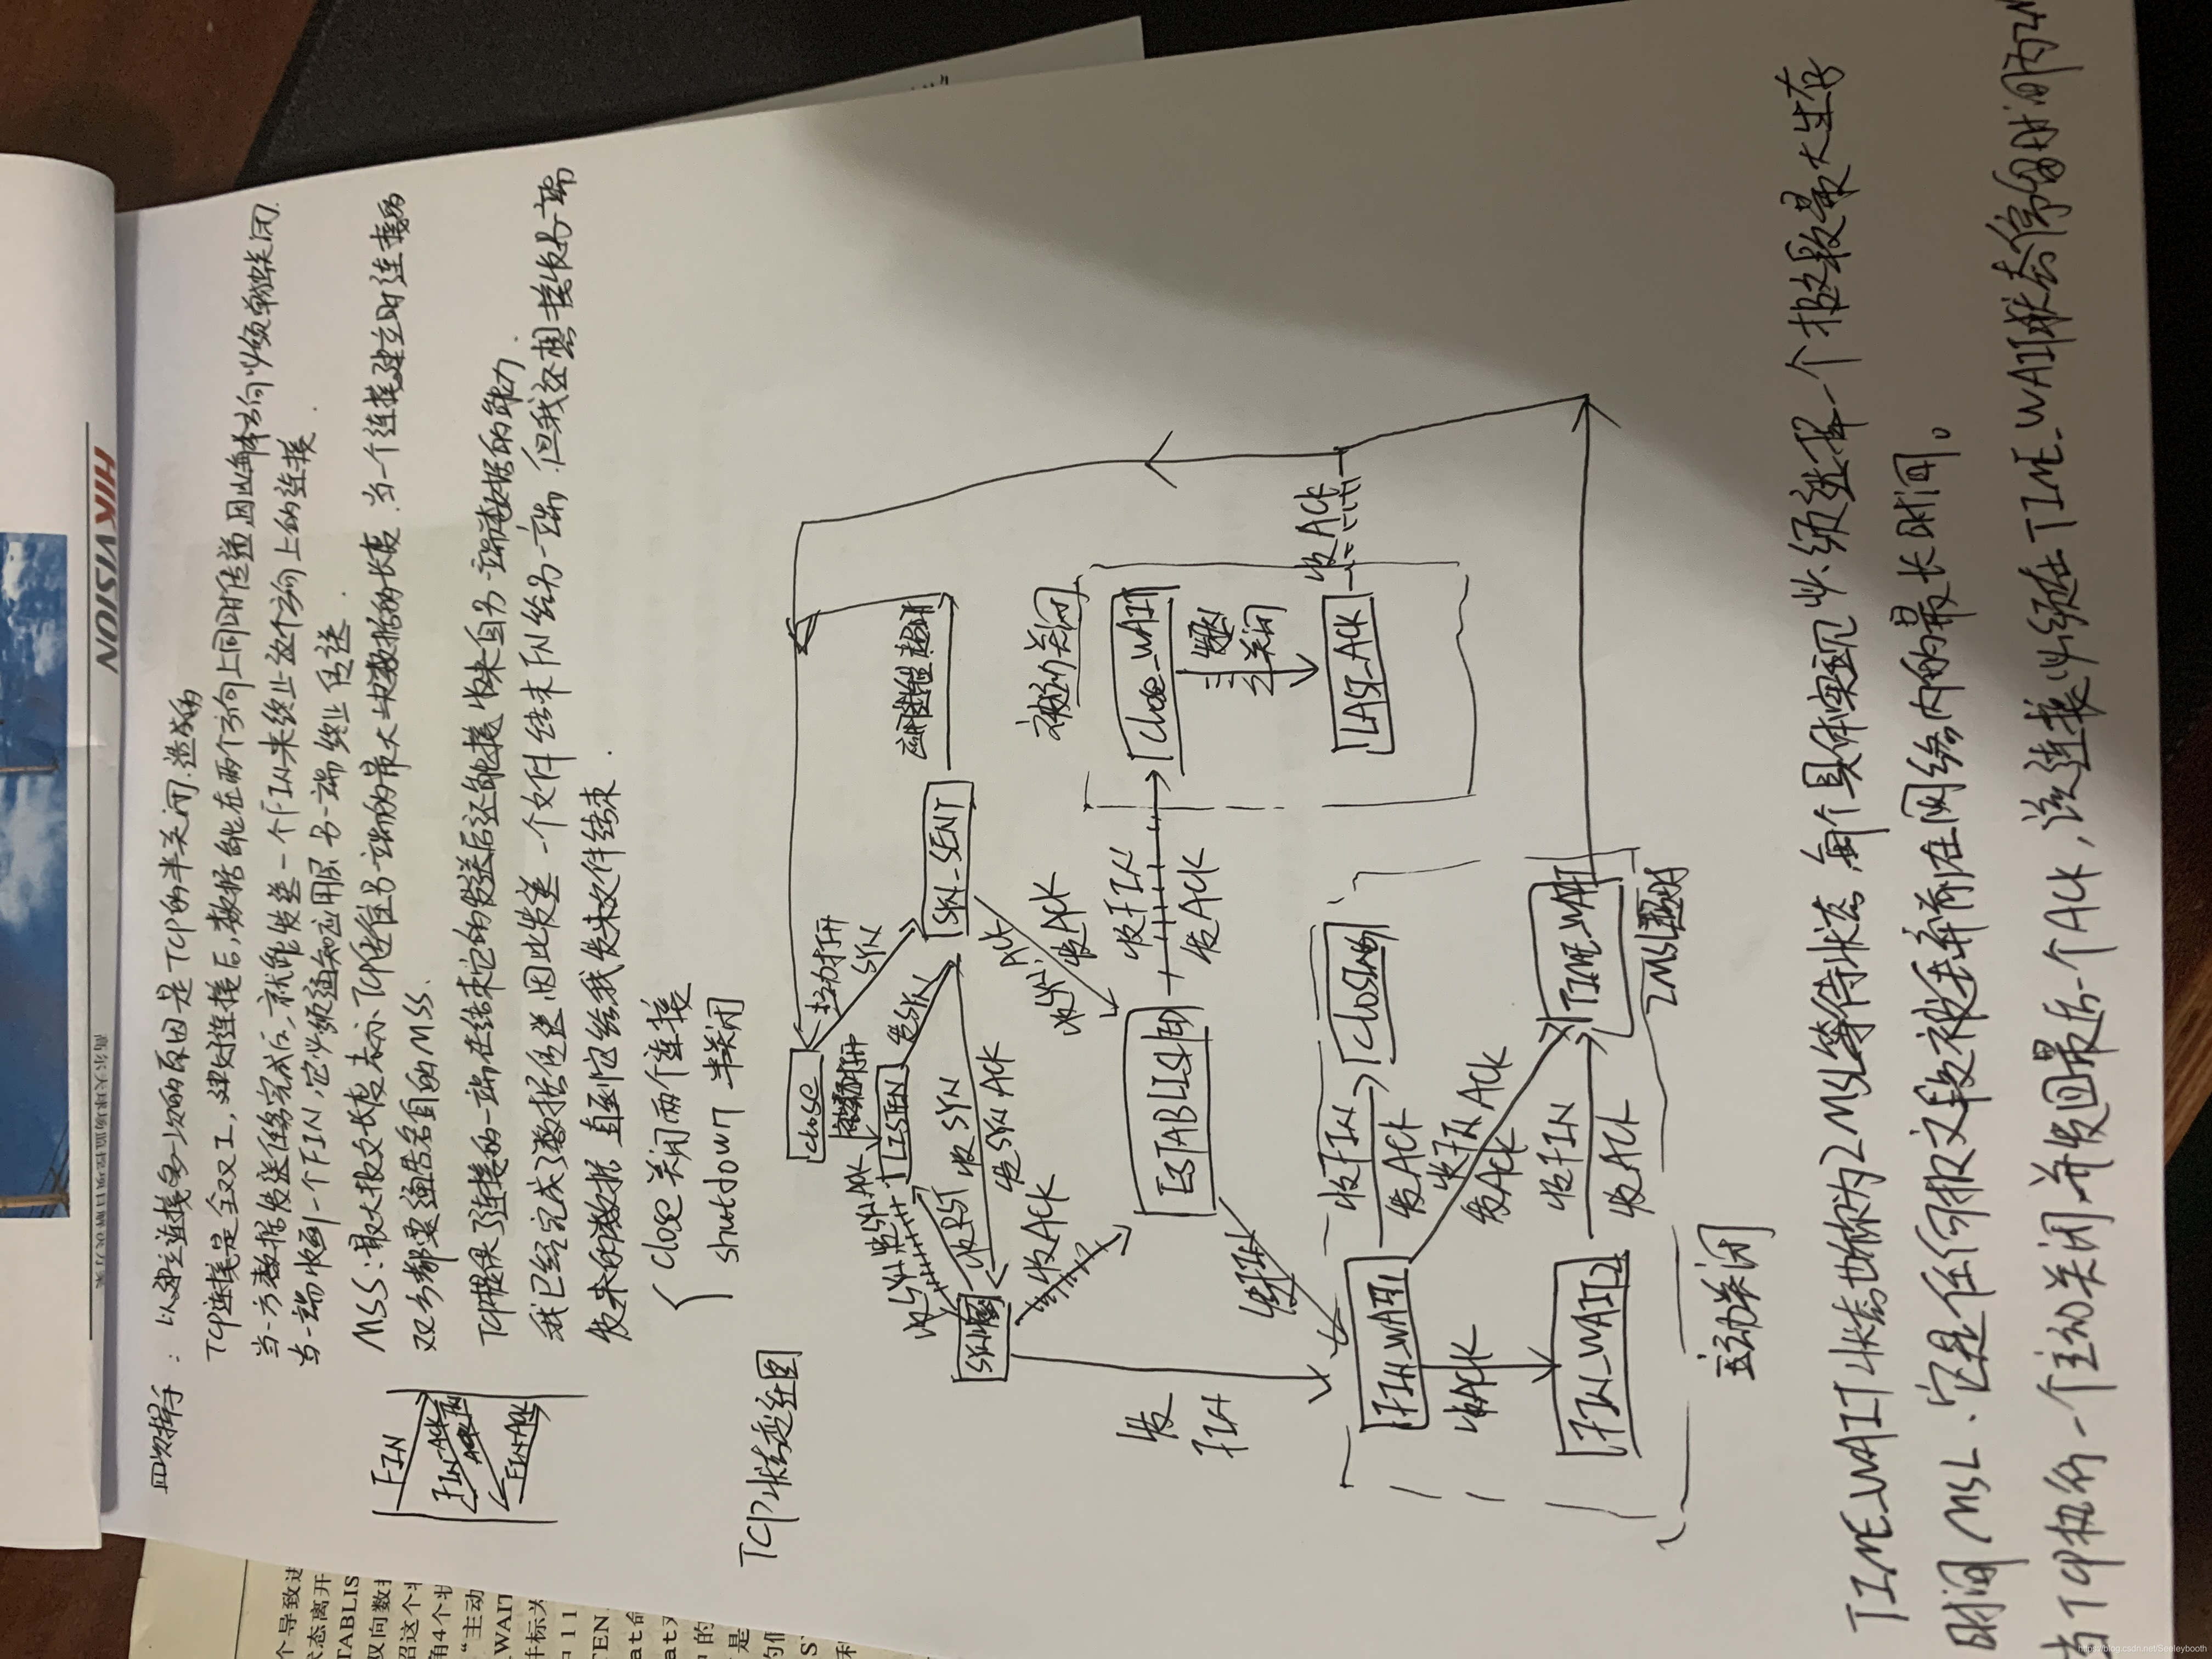 四次挥手：以建立连接多一次的原因是TCP的半关闭.造成的
TCP连接是全双工,建好连接后,数据能在两个方向上同时传送因此每个方向必须单独关闭.
当一方数据发送任务完成后,就能发送一个FIN来终止这个方向上的连接.
当一端收到一个FIN,它必须通知应用层另一端终止传送.
FIN
MSS:最大报文长度表示TCP送往另一端的最大块数据的长度.当一个连接建立时连接的
双方都要通告各自的MSS.
TCP提供了连接的一端在结束它的发送后还能接收来自另一端数据的能力.
我已经完成了数据传送.因此发送一个文件结束FIN给另一端,但我还想接收另一端
发来的数据 直到它给我发来文件结束.
close 关闭两个连接
shutdown 半关闭
TCP状态变迁图
close
主动打开
SYN
LISTEN
发SYN
SYN_SENT
收SYN
发SYN ACK
收RST
收SYN, ACK
发ACK
收ACK
ESTABLISHED
收FIN
发ACK
被动关闭
Close_WAIT
关闭
LAST_ACK
收ACK
发
FIN
发FIN
FIN_WAIT1
收FIN
发ACK
CLOSING
收FIN ACK
发ACK
收ACK
FIN_WAIT2
收FIN
发ACK
TIME_WAIT
2MSL
主动关闭
TIME_WAIT状态也称为2MSL等待状态 每个具体实现必须选择一个报文段最大生存
时间MSL.它是任何报文段被丢弃前在网络内的最长时间。
当TCP执行一个主动关闭,并发回最后一个ACK,该连接必须在TIME_WAIT状态停留时间为2
HIKVISION
个导致进
状态离开
TABLIS
双向数
绍这个
角4个状
“主动
WAIT
并标为
中 11
TEN
at命
at
中的
是
的
https://blog.csdn.net/Seeleybooth